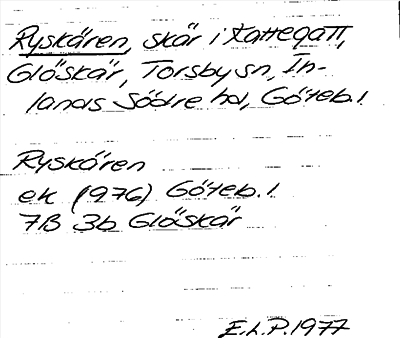 Ryskären, skär i Kattegatt,
Glöskär, Torsby sn, In-
lands Södre hd, Göteb. l
Ryskären
ek (1976) Göteb. l
7B 3b Glöskär
E.L.P. 1977